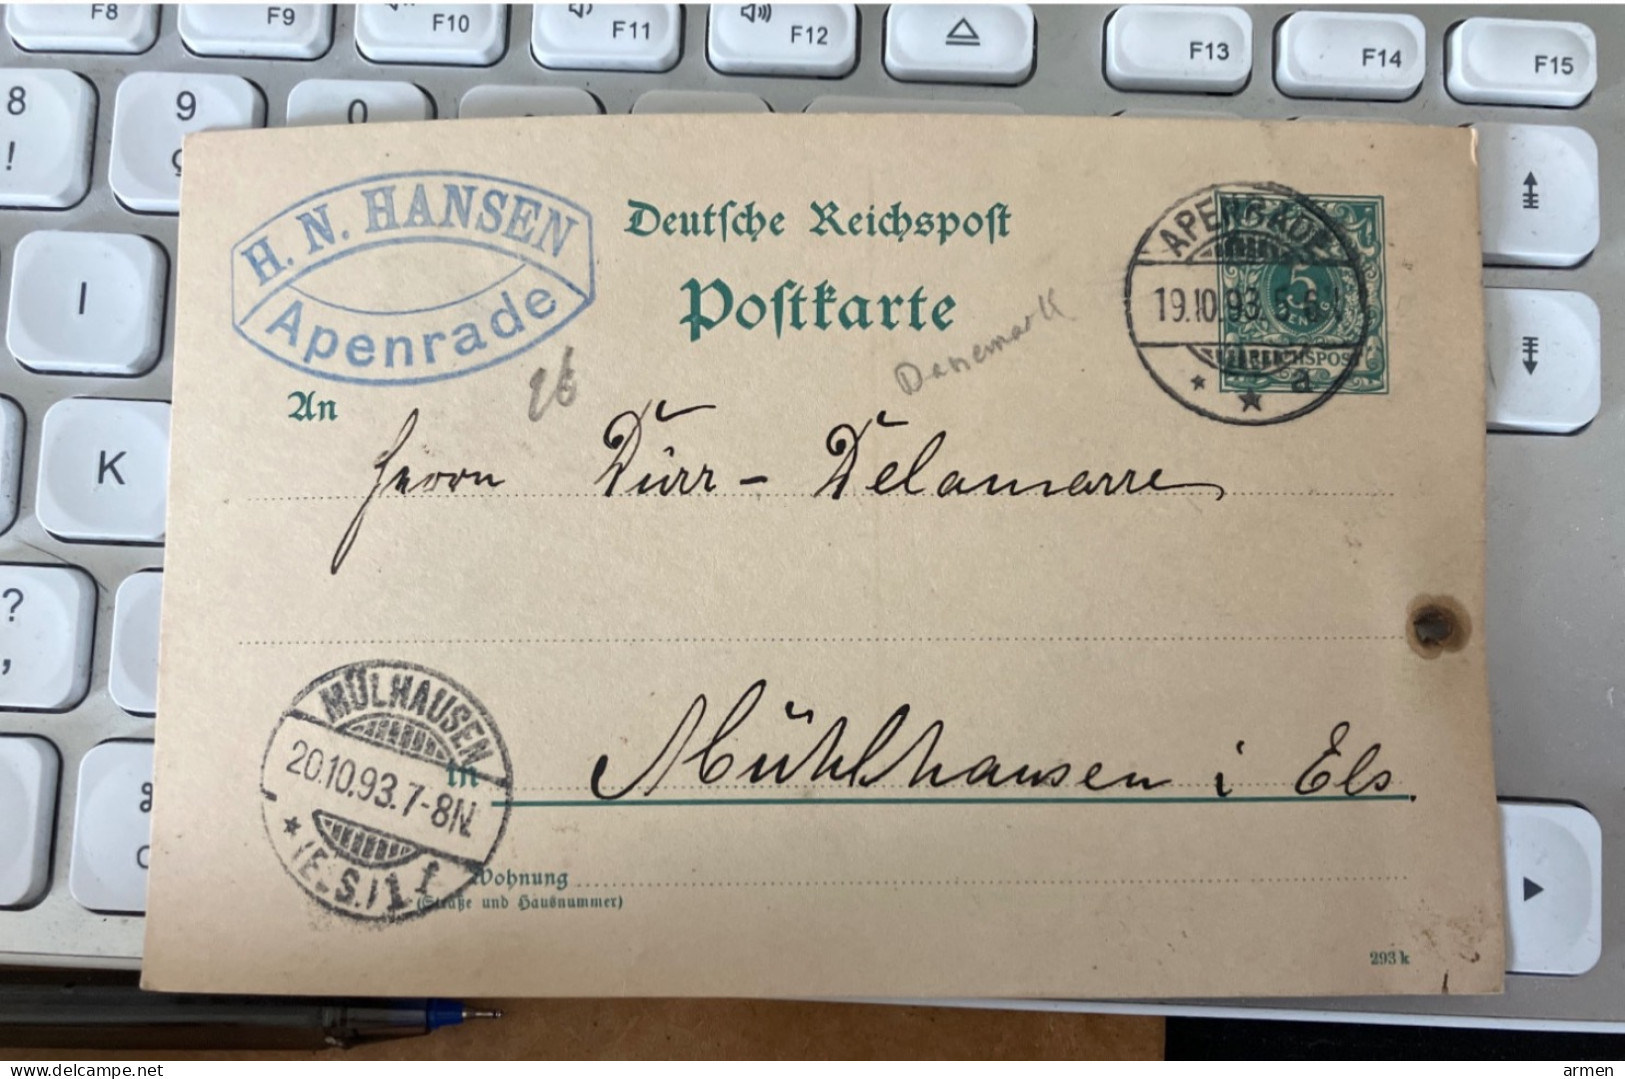 F8
F9
F10
F11
F12
F13
F14
F15
8
!
9
0
I
K
?
,
H. N. HANSEN
Apenrade
Deutsche Reichspost
Postkarte
APENRADE
19.10.93. 5-6
a
REICHSPOST
5
Danemark
26
An
Herrn Dürr-Delamarre
Mühlhausen i Els.
in
MÜLHAUSEN
20.10.93. 7-8N.
(ELS.) 1 f
Wohnung
(Straße und Hausnummer)
293 k
delcampe.net
armen